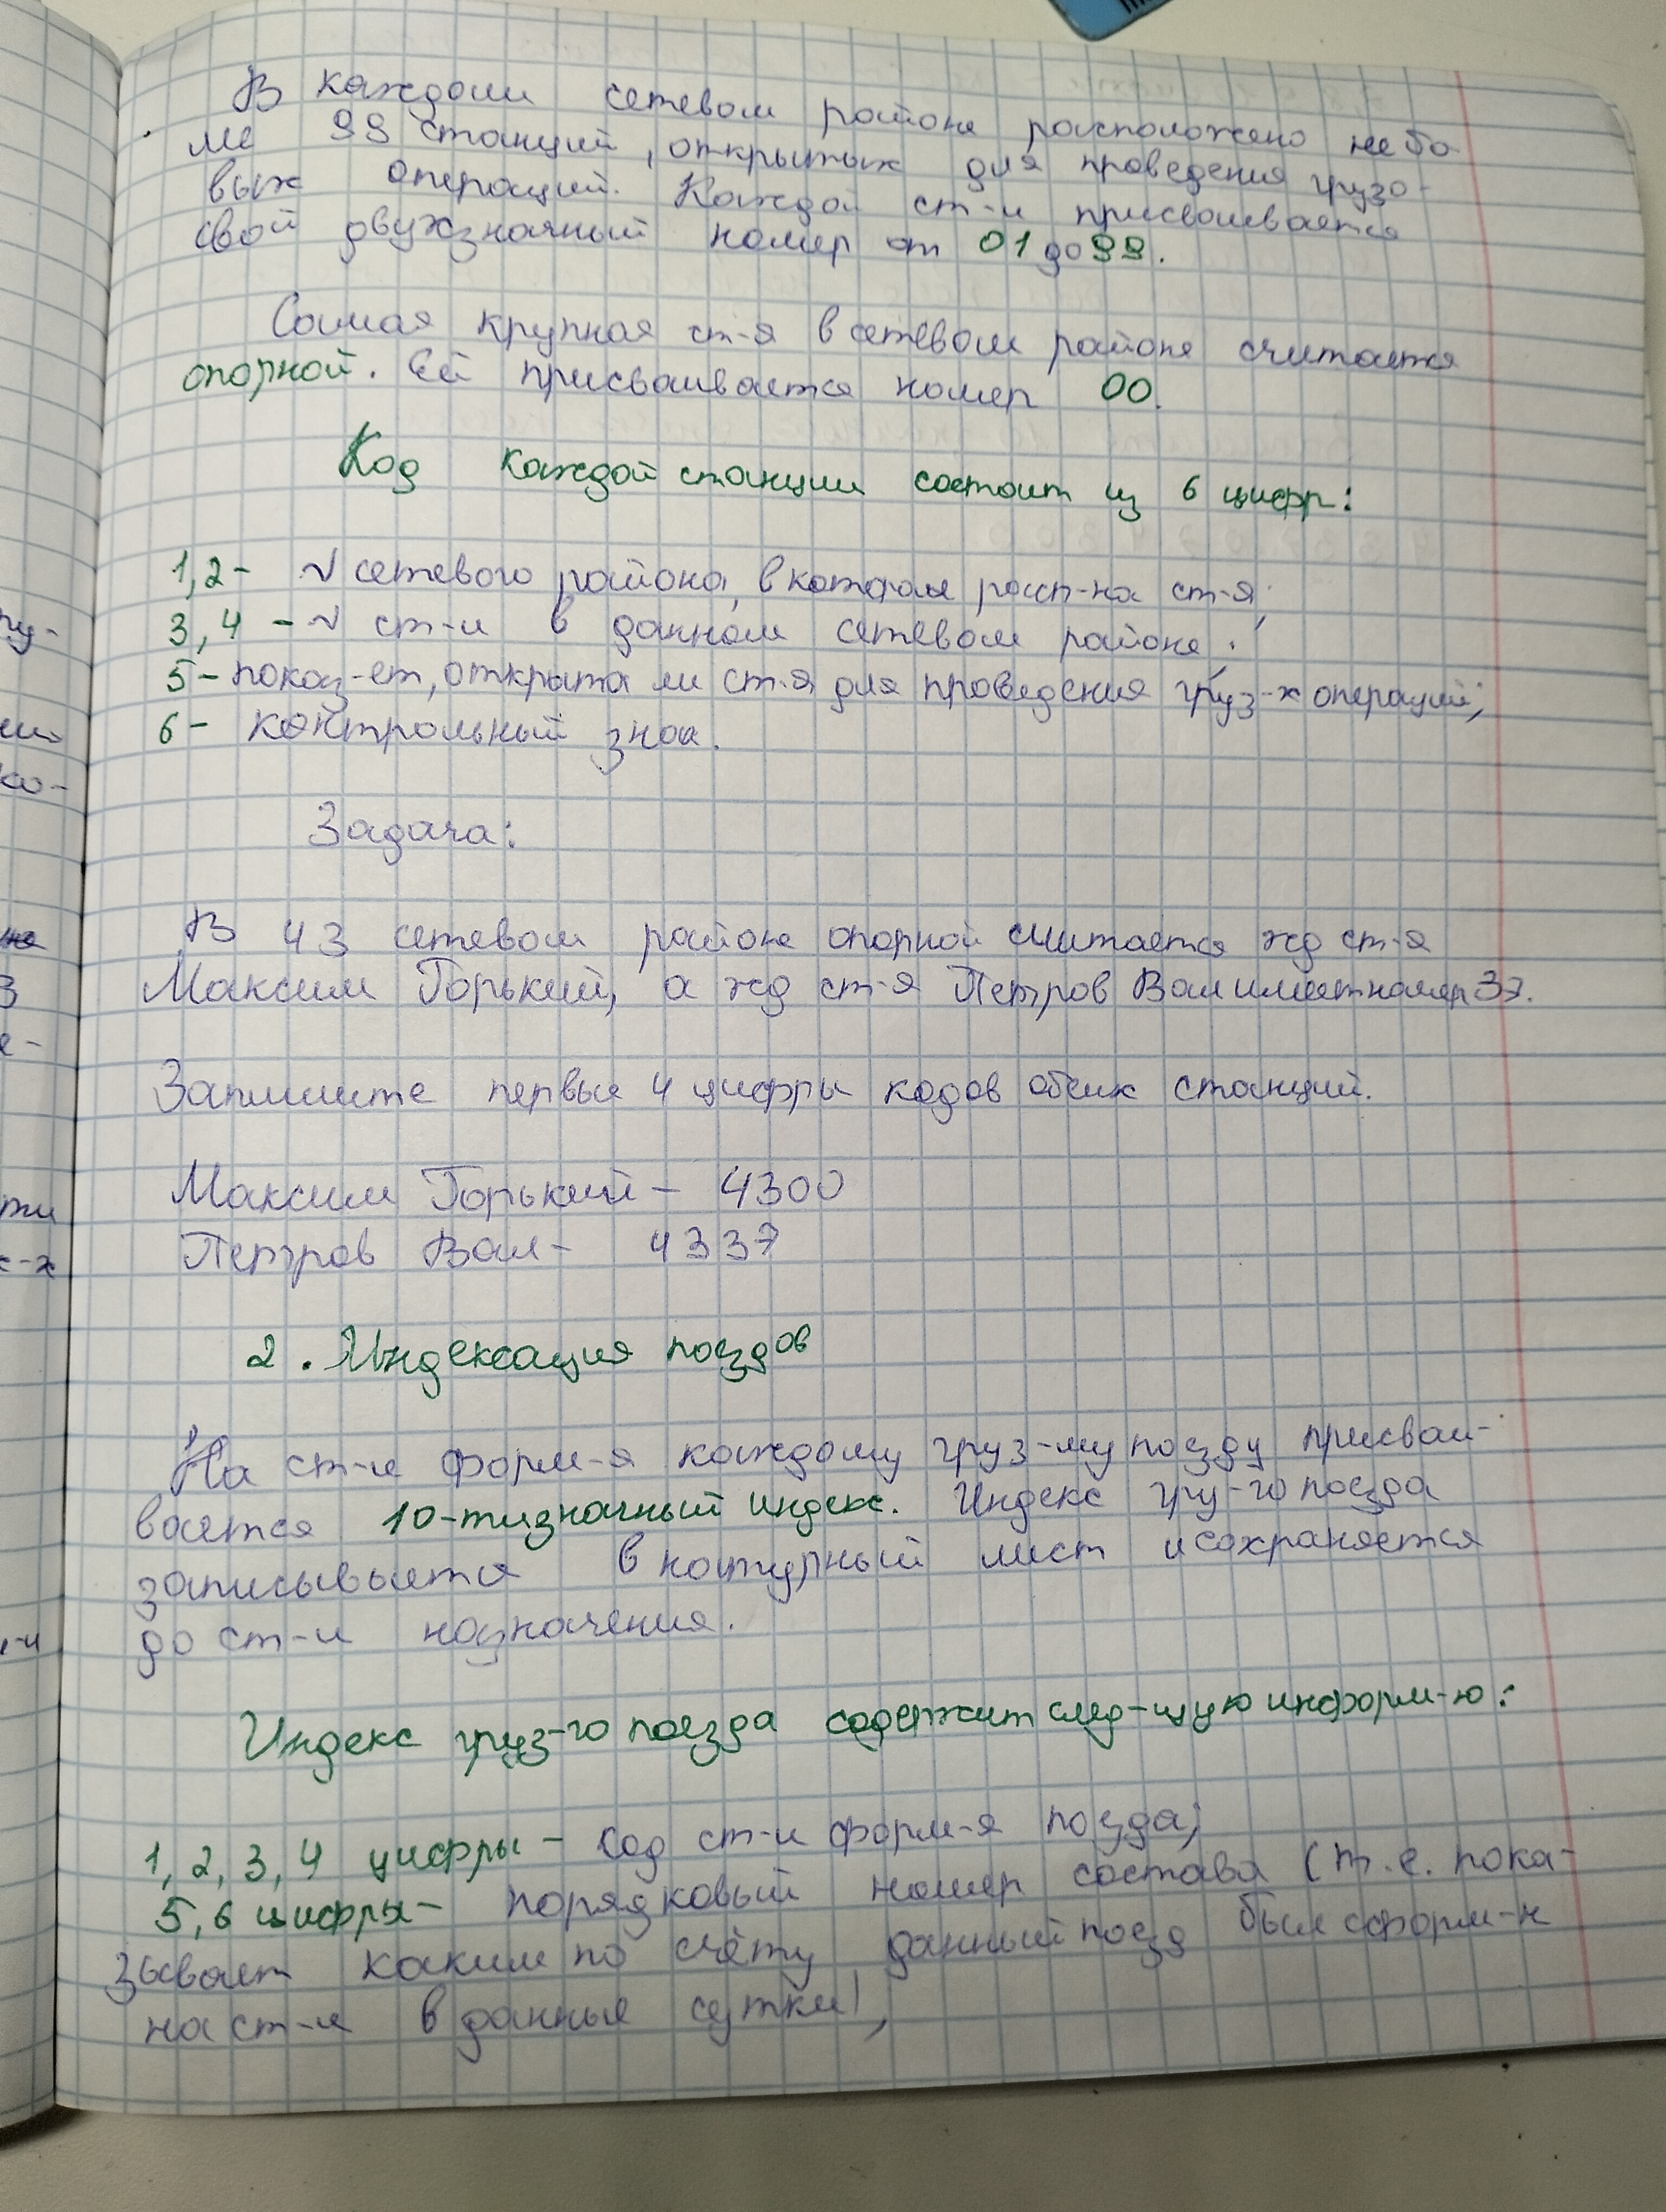 В каждом сетевом районе расположено не бо
ле 99 станций, открытых для проведения грузо-
вых операций. Каждой ст-и присваивается
свой двухзначный номер от 01 до 99.
Самая крупная ст-я в сетевом районе считается
опорной. Ей присваивается номер 00.
Код каждой станции состоит из 6 цифр:
1,2 - № сетевого района, в котором расп-на ст-я;
3,4 - № ст-и в данном сетевом районе;
5 - показ-ет, открыта ли ст-я для проведения груз-х операций;
6 - контрольный знак.
Задача:
В 43 сетевом районе опорной считается жд ст-я
Максим Горький, а жд ст-я Петров Вал имеет номер 37.
Запишите первые 4 цифры кодов обеих станций.
Максим Горький - 4300
Петров Вал - 4337
2. Индексация поездов
На ст-и форм-я каждому груз-му поезду присваи-
вается 10-тизначный индекс. Индекс гру-го поезда
записывается в натурный лист и сохраняется
до ст-и назначения.
Индекс груз-го поезда содержит след-щую информ-ю:
1, 2, 3, 4 цифры - код ст-и форм-я поезда;
5, 6 цифры - порядковый номер состава (т.е. пока-
зывает каким по счёту данный поезд был сформ-н
на ст-и в данные сутки),